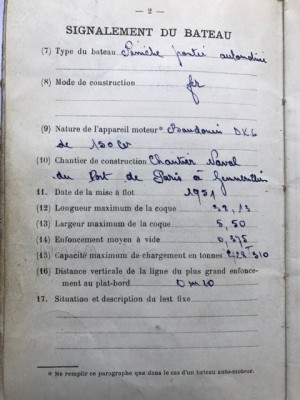 — 2 —
SIGNALEMENT DU BATEAU
(7) Type du bateau Péniche automoteur
(8) Mode de construction fer
(9) Nature de l'appareil moteur* Baudouin DK6
de 150 cv
(10) Chantier de construction Chantier Naval
du Port de Paris à Gennevilliers
11. Date de la mise à flot. 1951
(12) Longueur maximum de la coque 38,13
(13) Largeur maximum de la coque 5,50
(14) Enfoncement moyen à vide 0,375
(15) Capacité maximum de chargement en tonnes 310
(16) Distance verticale de la ligne du plus grand enfonce-
ment au plat-bord 0m10
17. Situation et description du lest fixe
* Ne remplir ce paragraphe que dans le cas d'un bateau auto-moteur.